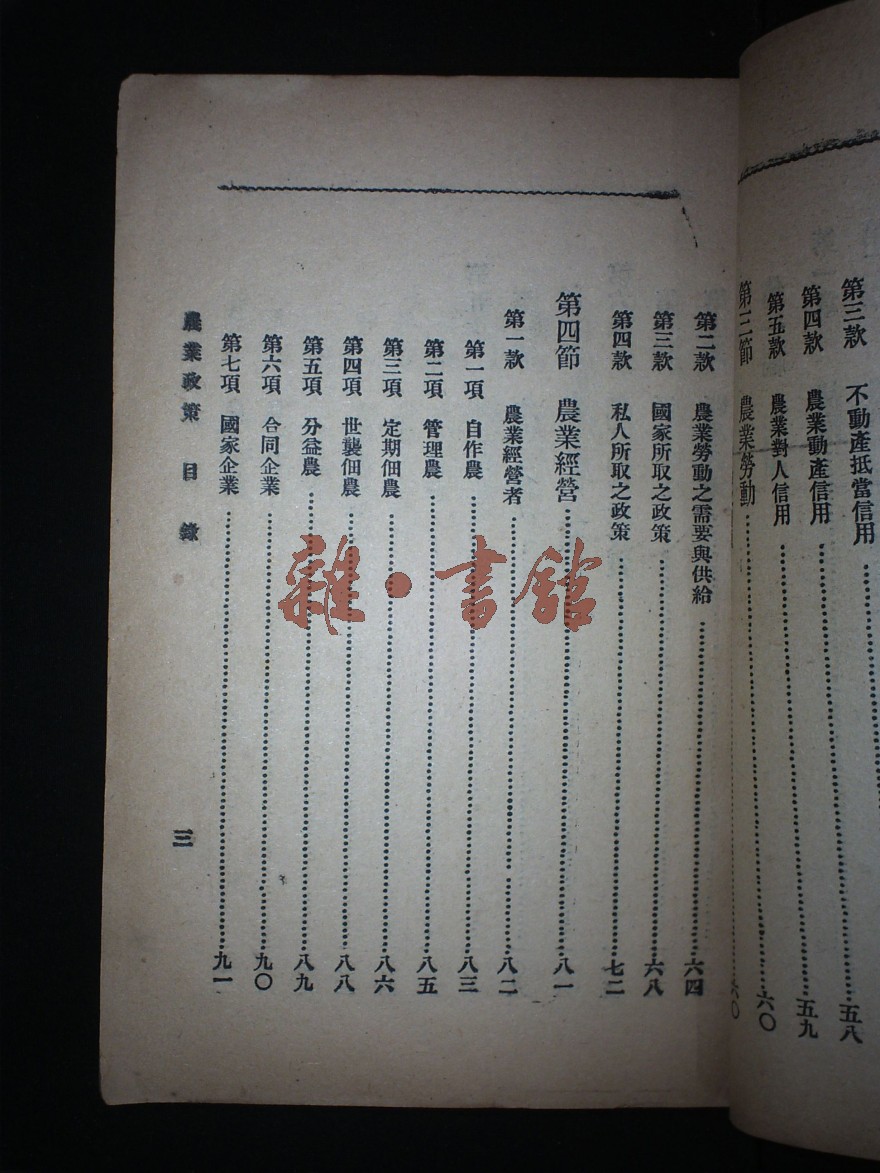 第三款 不動產抵當信用 五八
第四款 農業動產信用 五九
第五款 農業對人信用 六〇
第三節 農業勞動 六〇
第二款 農業勞動之需要與供給 六四
第三款 國家所取之政策 六八
第四款 私人所取之政策 七二
第四節 農業經營 八一
第一款 農業經營者 八二
第一項 自作農 八三
第二項 管理農 八五
第三項 定期佃農 八六
第四項 世襲佃農 八八
第五項 分益農 八九
第六項 合同企業 九〇
第七項 國家企業 九一
農業政策 目錄 三
雜·書館